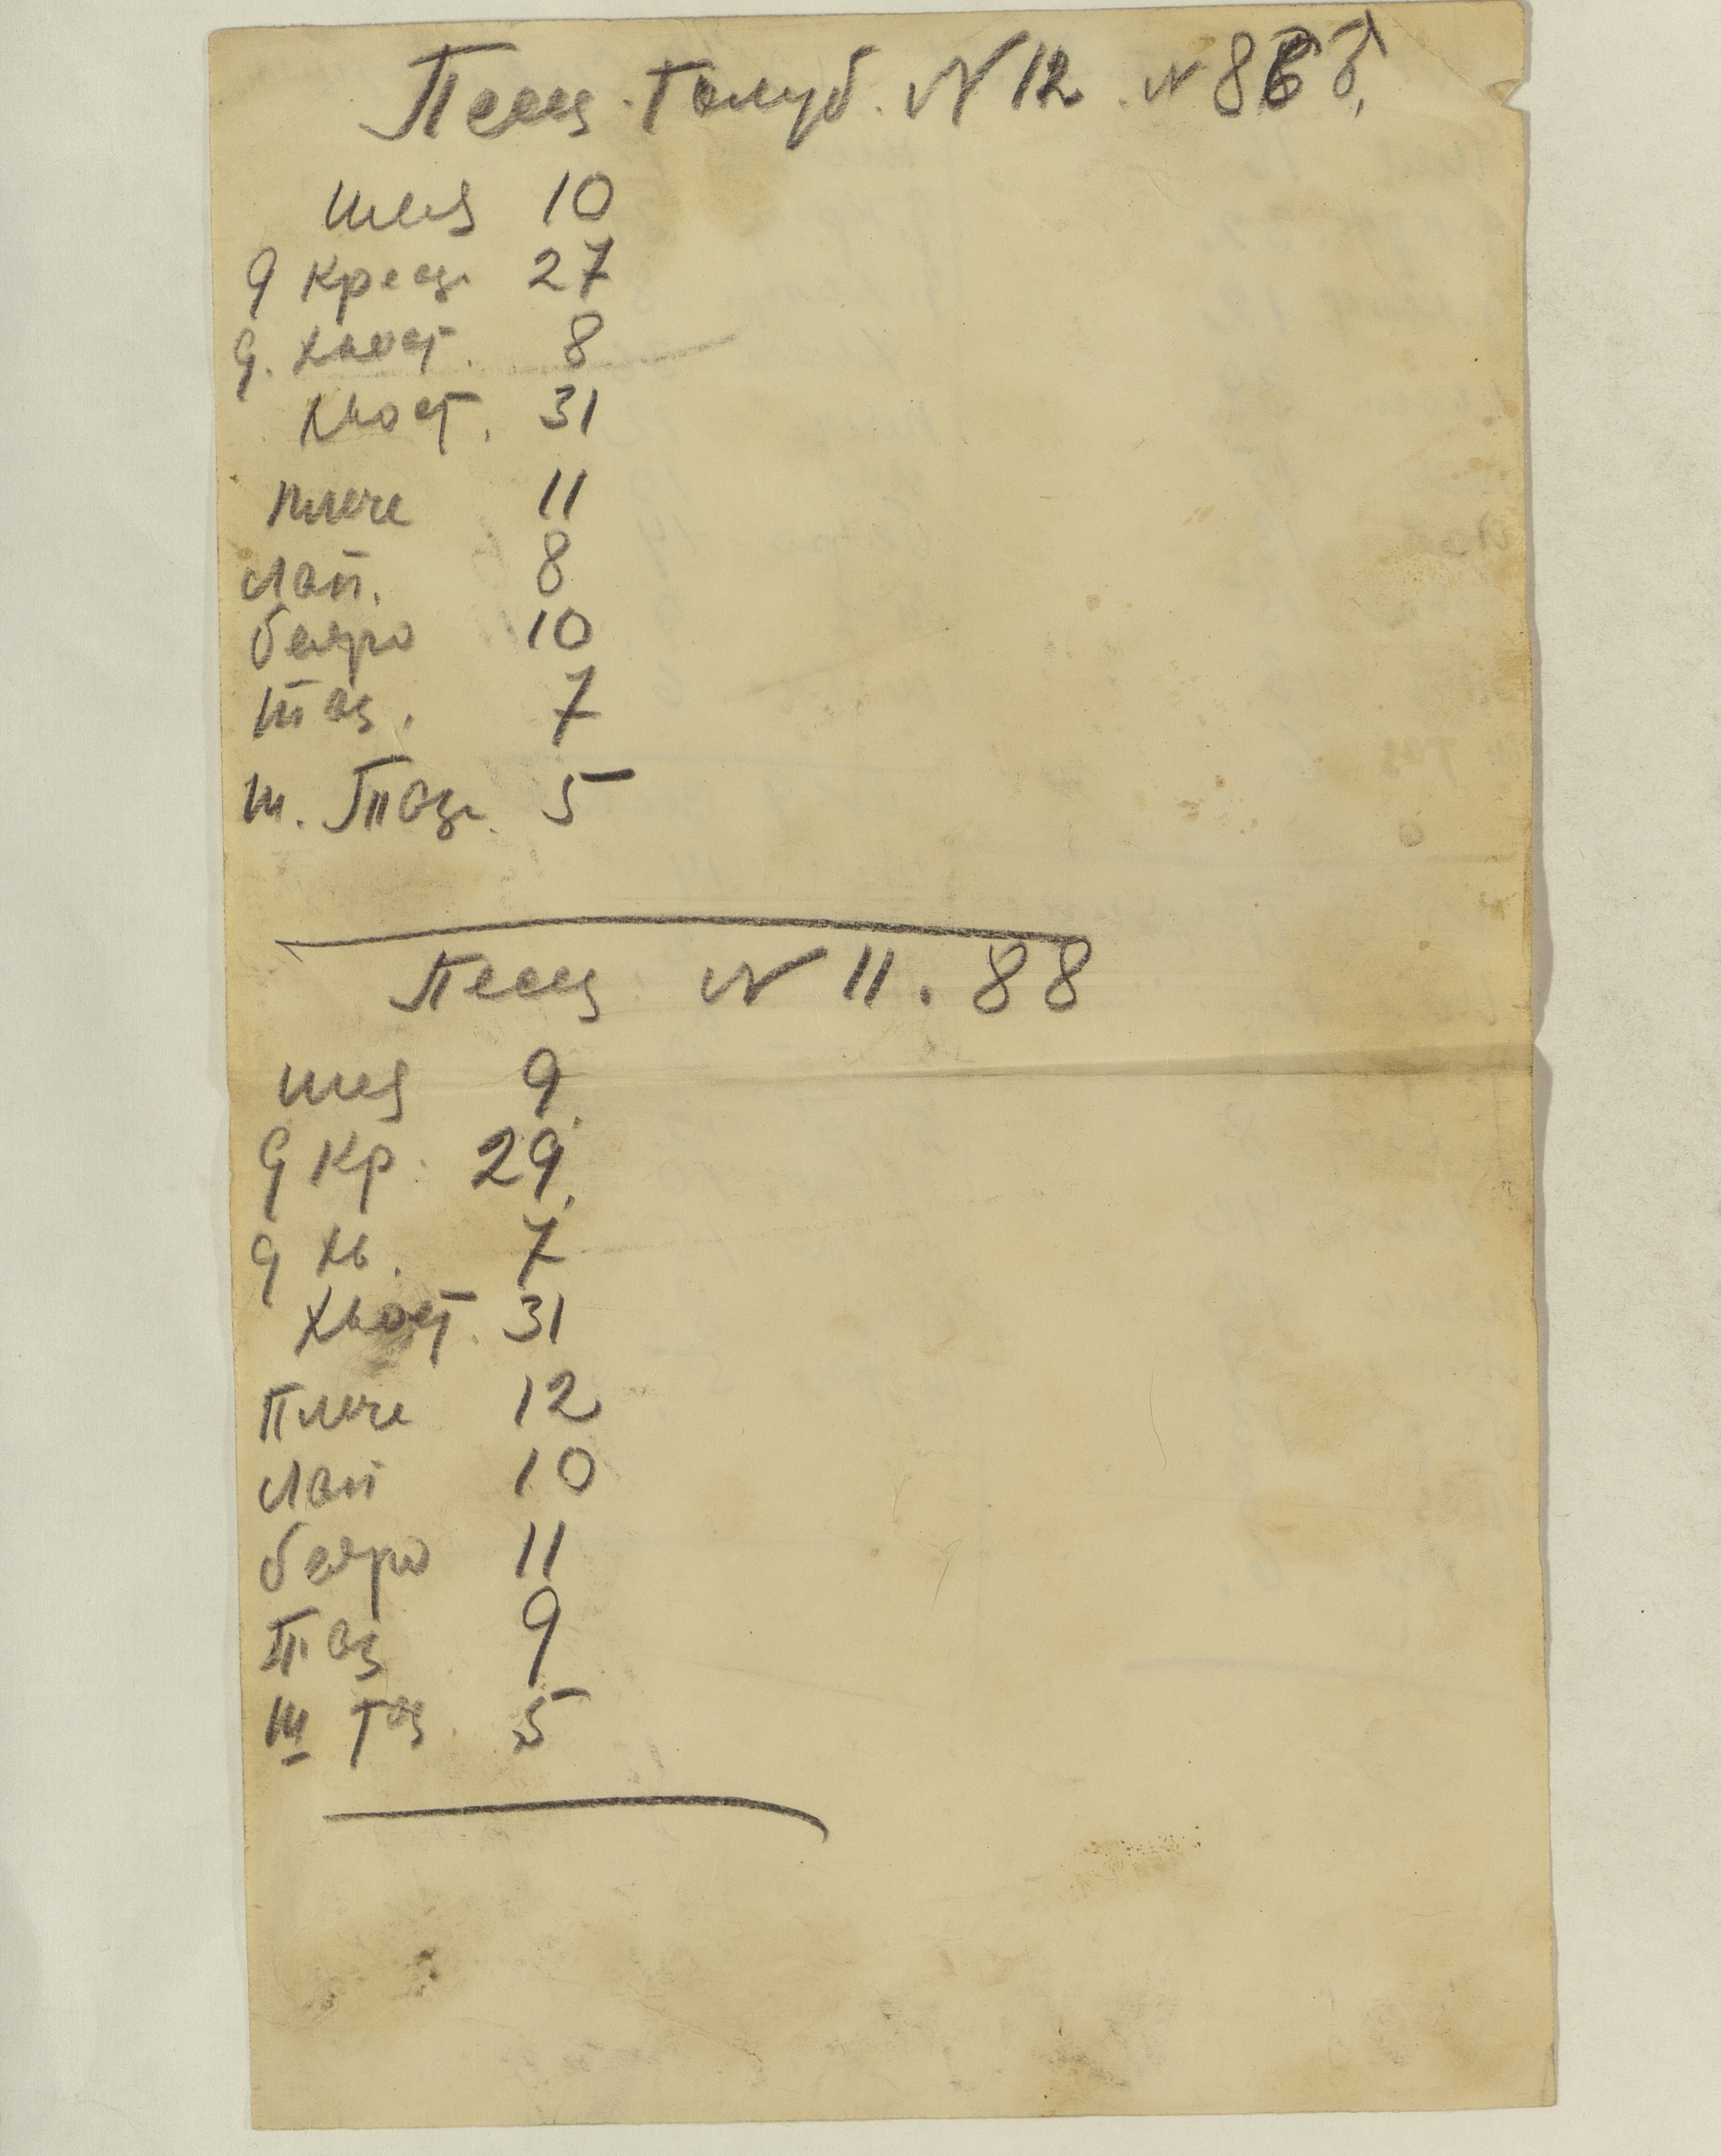 Песец. Голуб. N 12. N 86
шея 10
д крест 27
д. хвост. 8
хвост. 31
плече 11
лап. 8
бедро 10
таз. 7
ш. таз. 5
Песец N 11. 88
шея 9.
д кр. 29.
д хв. 7
хвост. 31
плече 12
лап 10
бедро 11
таз 9
ш таз. 5